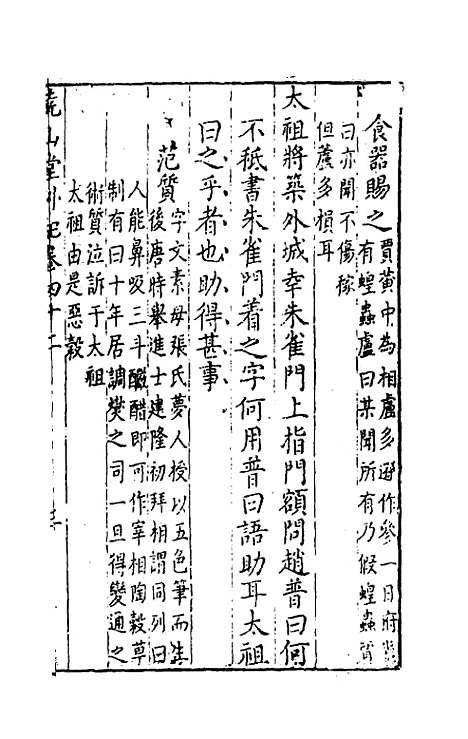 食器賜之
賈黃中為相盧多遜作參一日府
有蝗蟲盧曰某聞所有乃假蝗蟲賈
曰亦聞不傷稼
但蘆多損耳
太祖將築外城幸朱雀門上指門額問趙普曰何
不祗書朱雀門着之字何用普曰語助耳太祖
曰之乎者也助得甚事
范質
字文素母張氏夢人授以五色筆而生
後唐時舉進士建隆初拜相謂同列曰
人能鼻吸三斗釅醋即可作宰相陶穀草
制有曰十年居調爕之司一旦得變通之
術質泣訴于太祖
太祖由是惡穀
堯山堂外紀卷四十二